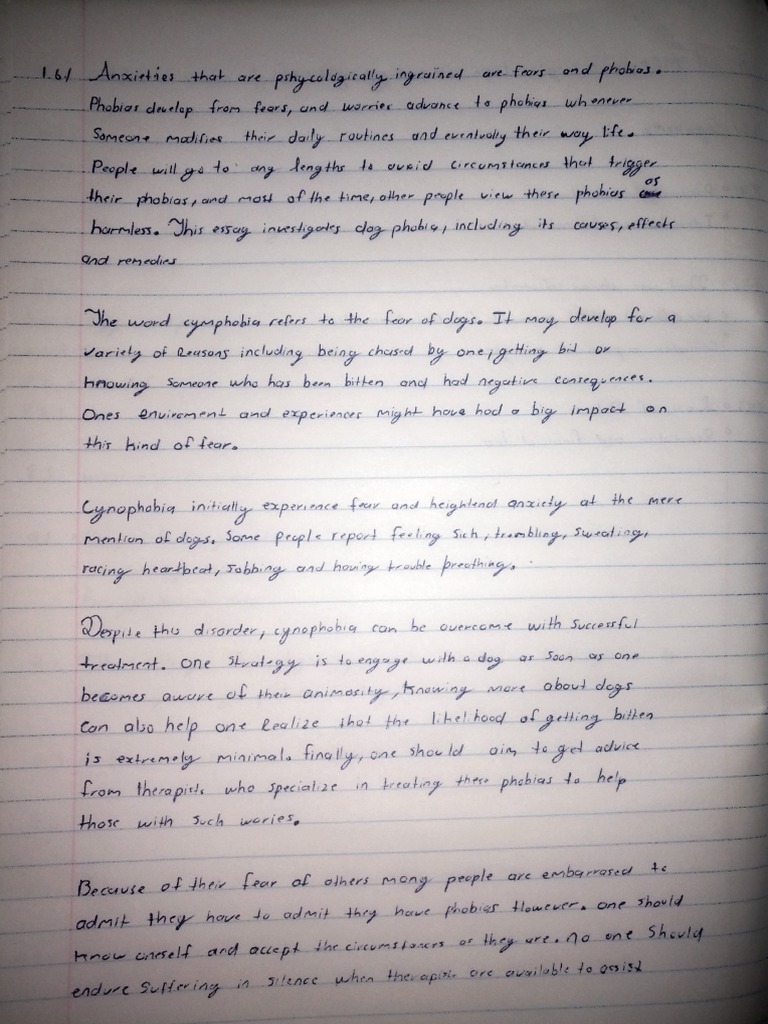 1.6.1 Anxieties that are pshycologically ingrained are fears and phobias.
Phobias develop from fears, and worries advance to phobias whenever
Someone modifies their daily routines and eventually their way life.
People will go to any lengths to avoid circumstances that trigger
their phobias, and most of the time, other people view these phobias as
harmless. This essay investigates dog phobia, including its causes, effects
and remedies
The word cymphobia refers to the fear of dogs. It may develop for a
variety of Reasons including being chased by one, getting bit or
knowing someone who has been bitten and had negative consequences.
Ones enviroment and experiences might have had a big impact on
this kind of fear.
Cynophobia initially experience fear and heightend anxiety at the mere
mention of dogs. Some people report feeling sick, trembling, sweating,
racing heartbeat, sobbing and having trouble breathing.
Despite this disorder, cynophobia can be overcome with successful
treatment. One strategy is to engage with a dog as soon as one
becomes aware of their animosity, knowing more about dogs
can also help one Realize that the likelihood of getting bitten
is extremely minimal. finally, one should aim to get advice
from therapists who specialize in treating these phobias to help
those with such wories.
Because of their fear of others many people are embarrased to
admit they have to admit they have phobias However. one should
know oneself and accept the circumstances as they are. no one should
endure suffering in silence when therapists are available to assist